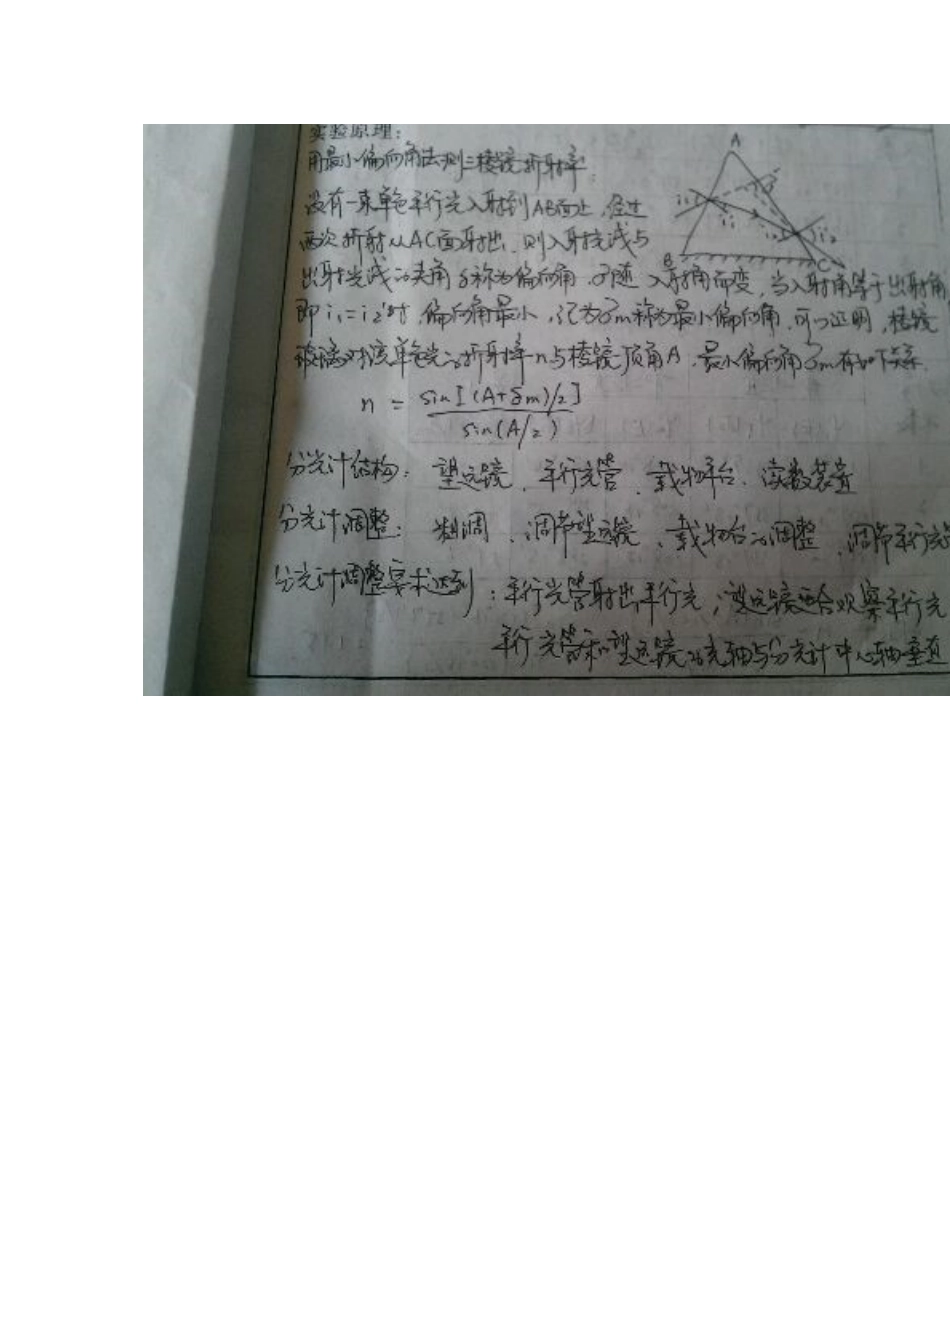 实验原理：
用最小偏向角法测三棱镜折射率.
A
设有一束单色平行光入射到AB面上，经过
两次折射从AC面射出，则入射光线与
B
C
出射光线的夹角δ称为偏向角，δ随入射角而变，当入射角等于出射角
即i₁=i₂'时，偏向角最小，记为δm称为最小偏向角，可以证明，棱镜
玻璃对该单色光的折射率n与棱镜顶角A、最小偏向角δm有如下关系.
n = sin[(A+δm)/2] / sin(A/2)
分光计结构：望远镜、平行光管、载物平台、读数装置
分光计调整：粗调、调节望远镜、载物台的调整、调节平行光
分光计调整要求达到：平行光管射出平行光；望远镜适合观察平行光
平行光管和望远镜的光轴与分光计中心轴垂直